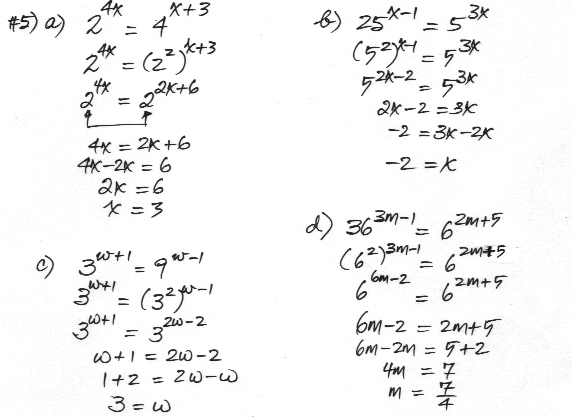 #5) a) 2^{4x} = 4^{x+3}
2^{4x} = (2^2)^{x+3}
2^{4x} = 2^{2x+6}
4x = 2x+6
4x-2x = 6
2x = 6
x = 3
b) 25^{x-1} = 5^{3x}
(5^2)^{x-1} = 5^{3x}
5^{2x-2} = 5^{3x}
2x-2 = 3x
-2 = 3x-2x
-2 = x
c) 3^{w+1} = 9^{w-1}
3^{w+1} = (3^2)^{w-1}
3^{w+1} = 3^{2w-2}
w+1 = 2w-2
1+2 = 2w-w
3 = w
d) 36^{3m-1} = 6^{2m+5}
(6^2)^{3m-1} = 6^{2m+5}
6^{6m-2} = 6^{2m+5}
6m-2 = 2m+5
6m-2m = 5+2
4m = 7
m = 7/4